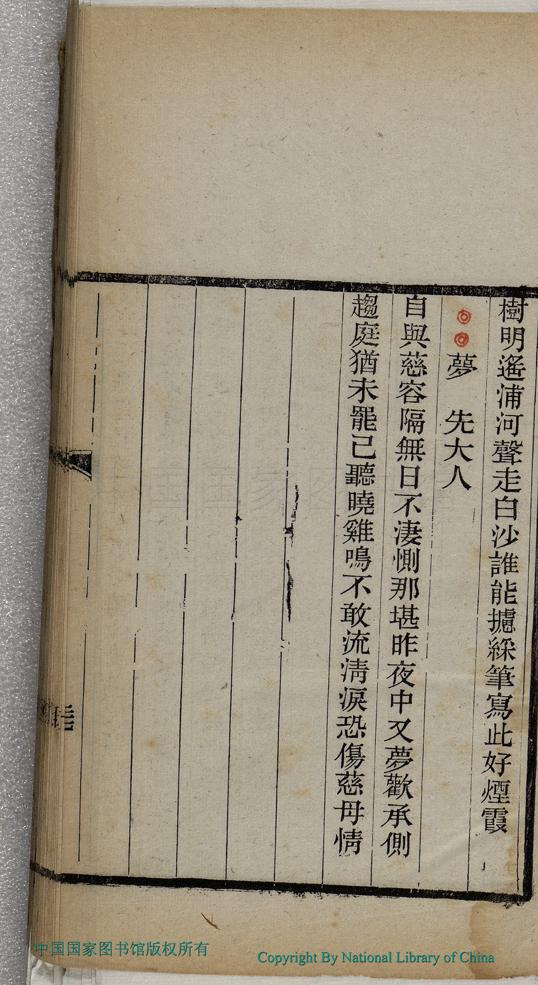 樹明遙浦河聲走白沙誰能攄綵筆寫此好煙霞
夢　先大人
自與慈容隔無日不淒惻那堪昨夜中又夢歡承側
趨庭猶未罷已聽曉雞鳴不敢流清淚恐傷慈母情
中国国家图书馆版权所有
Copyright By National Library of China